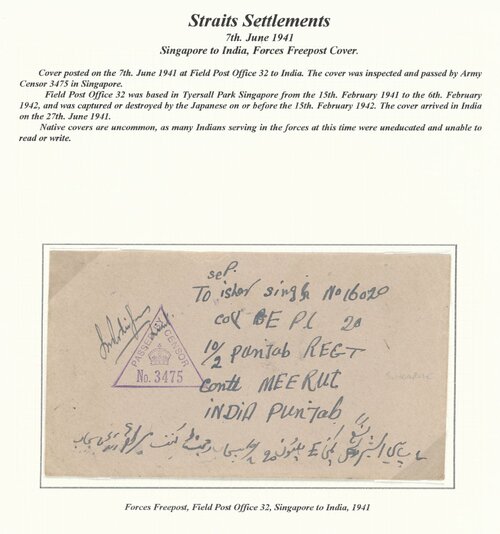 Straits Settlements
7th. June 1941
Singapore to India, Forces Freepost Cover.
Cover posted on the 7th. June 1941 at Field Post Office 32 to India. The cover was inspected and passed by Army
Censor 3475 in Singapore.
Field Post Office 32 was based in Tyersall Park Singapore from the 15th. February 1941 to the 6th. February
1942, and was captured or destroyed by the Japanese on or before the 15th. February 1942. The cover arrived in India
on the 27th. June 1941.
Native covers are uncommon, as many Indians serving in the forces at this time were uneducated and unable to
read or write.
seP.
To isher singh No 16020
coy BE Pl 20
10/2 punjab REGT
PASSED BY CENSOR
No. 3475
contt MEERUT
iNDiA Punjab
Forces Freepost, Field Post Office 32, Singapore to India, 1941